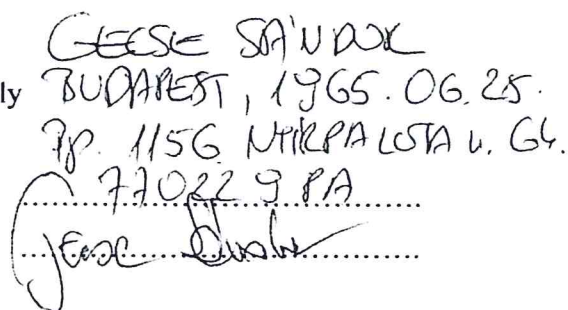 GECSE SÁNDOR
ly BUDAPEST, 1965.06.25.
Bp. 1156 NYÍRPALOTA u. 64.
770229 PA
Gecse Sándor